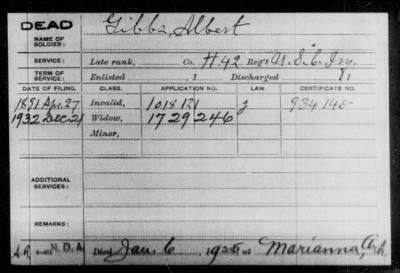 DEAD
NAME OF SOLDIER: Gibbs, Albert
SERVICE: Late rank, Co. H 42 Reg't U.S.C. Inf.
TERM OF SERVICE: Enlisted , 1 Discharged , 1
DATE OF FILING. CLASS. APPLICATION NO. LAW. CERTIFICATE NO.
1891 Apr. 27 Invalid, 1018121 934145
1932 Dec 21 Widow, 1729246
Minor,
ADDITIONAL SERVICES:
REMARKS:
N.D.A. Died Jan. 6, 1925 at Marianna, Ark